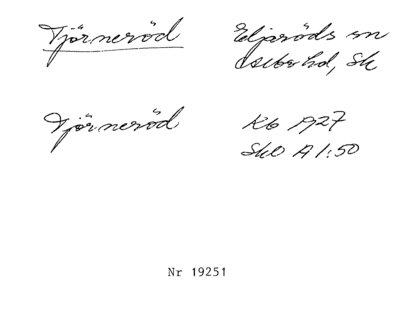 Tjörneröd
Eljaröds sn
Albo hd, Sk
Tjörneröd
Kb 1927
Sk0 A 1:50
Nr 19251